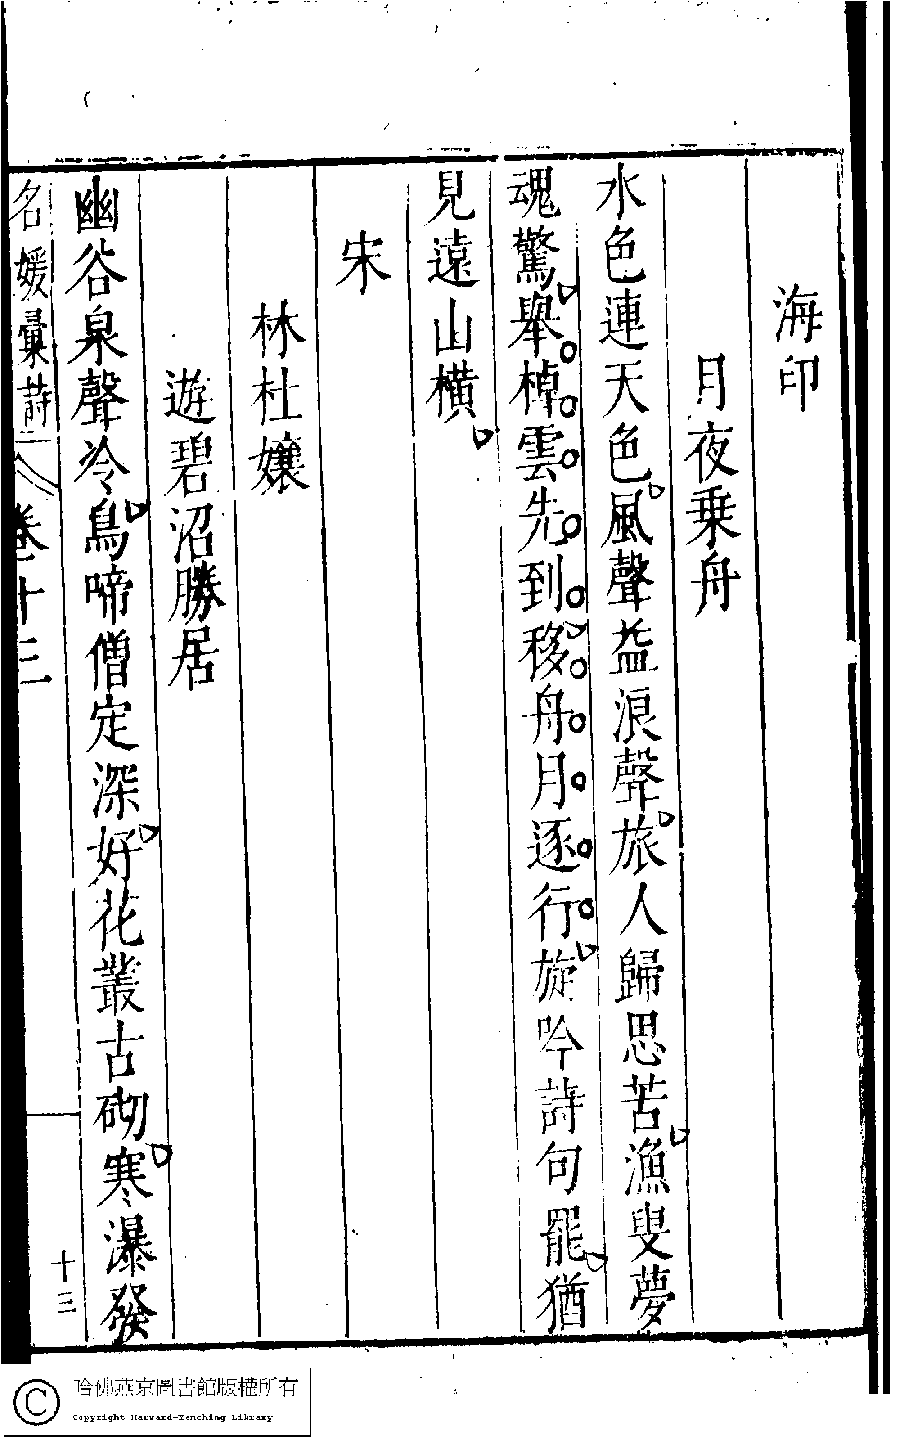 海印
月夜乗舟
水色連天色風聲益浪聲旅人歸思苦漁叟夢
魂驚舉棹雲先到移舟月逐行旋吟詩句罷猶
見遠山橫
宋
林杜孃
遊碧沼勝居
幽谷泉聲冷鳥啼僧定深好花叢古砌寒瀑發
名媛彙詩 卷十三
十三
哈佛燕京圖書館版權所有
Copyright Harvard-Yenching Library